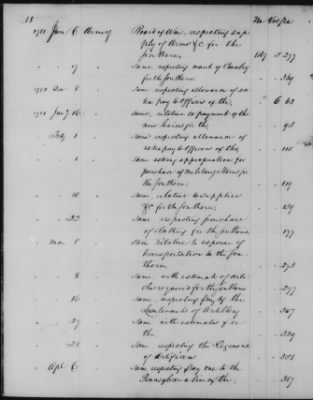 18 No Vol Pa
1781 Jan 6 Army Board of War, respecting sup
ply of Arms &C for the
Southern, 147 3 277
" 17 " Same respecting want of Cavalry
for the Southern " - 389
1780 Dec 8 " Same respecting allowance of ex
tra pay to Officers of the, " 6 62
1781 Jany 16 " Same, relative to payment of the
for the, " - 98
Feby 1 " Same respecting allowance of
extra pay to Officers of the, " - 115
" 1 " Same asking appropriation for
purchase of Military Stores for
the Southern; " - 119
" 10 " Same relative to supplies
&C for the Southern; " - 139
" 22 " Same respecting purchase
of clothing for the Southern " - 177
Mar 8 " Same relative to expense of
transportation to the Sou
thern " - 273
" 8 " Same with estimate of arti
cles required for the Southern " - 277
" 16 " Same, respecting pay to the
Lieutenants of Artillery " - 307
" 27 " Same with estimates for
the " - 339
" 28 " Same respecting the Regiment
of Artificers " - 351
" Apl 6 " Same respecting pay due to the
Pennsylvania line of the, " - 357